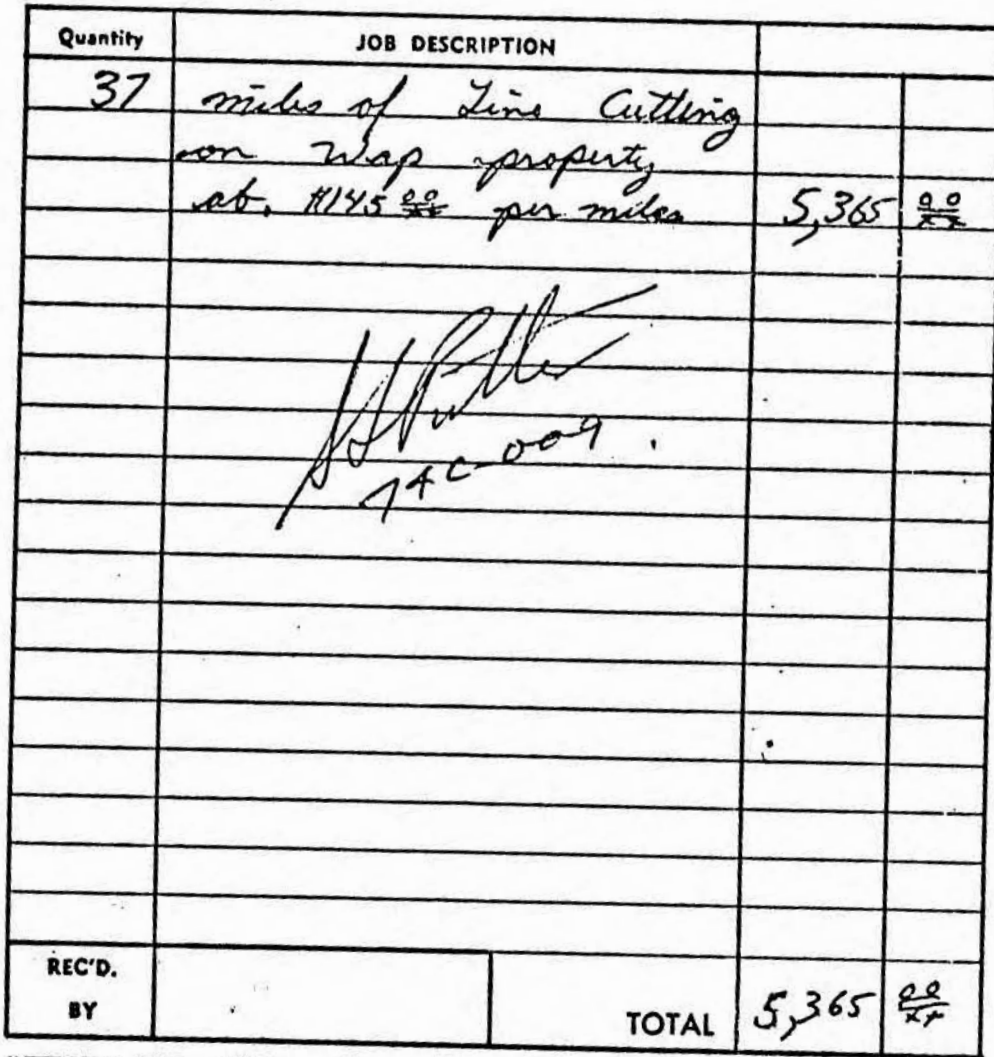 Quantity JOB DESCRIPTION
37 miles of Line Cutting
on Wap property
at. $145 00/xx per miles 5,365 00/xx
74C-009.
REC'D.
BY TOTAL 5,365 00/xx